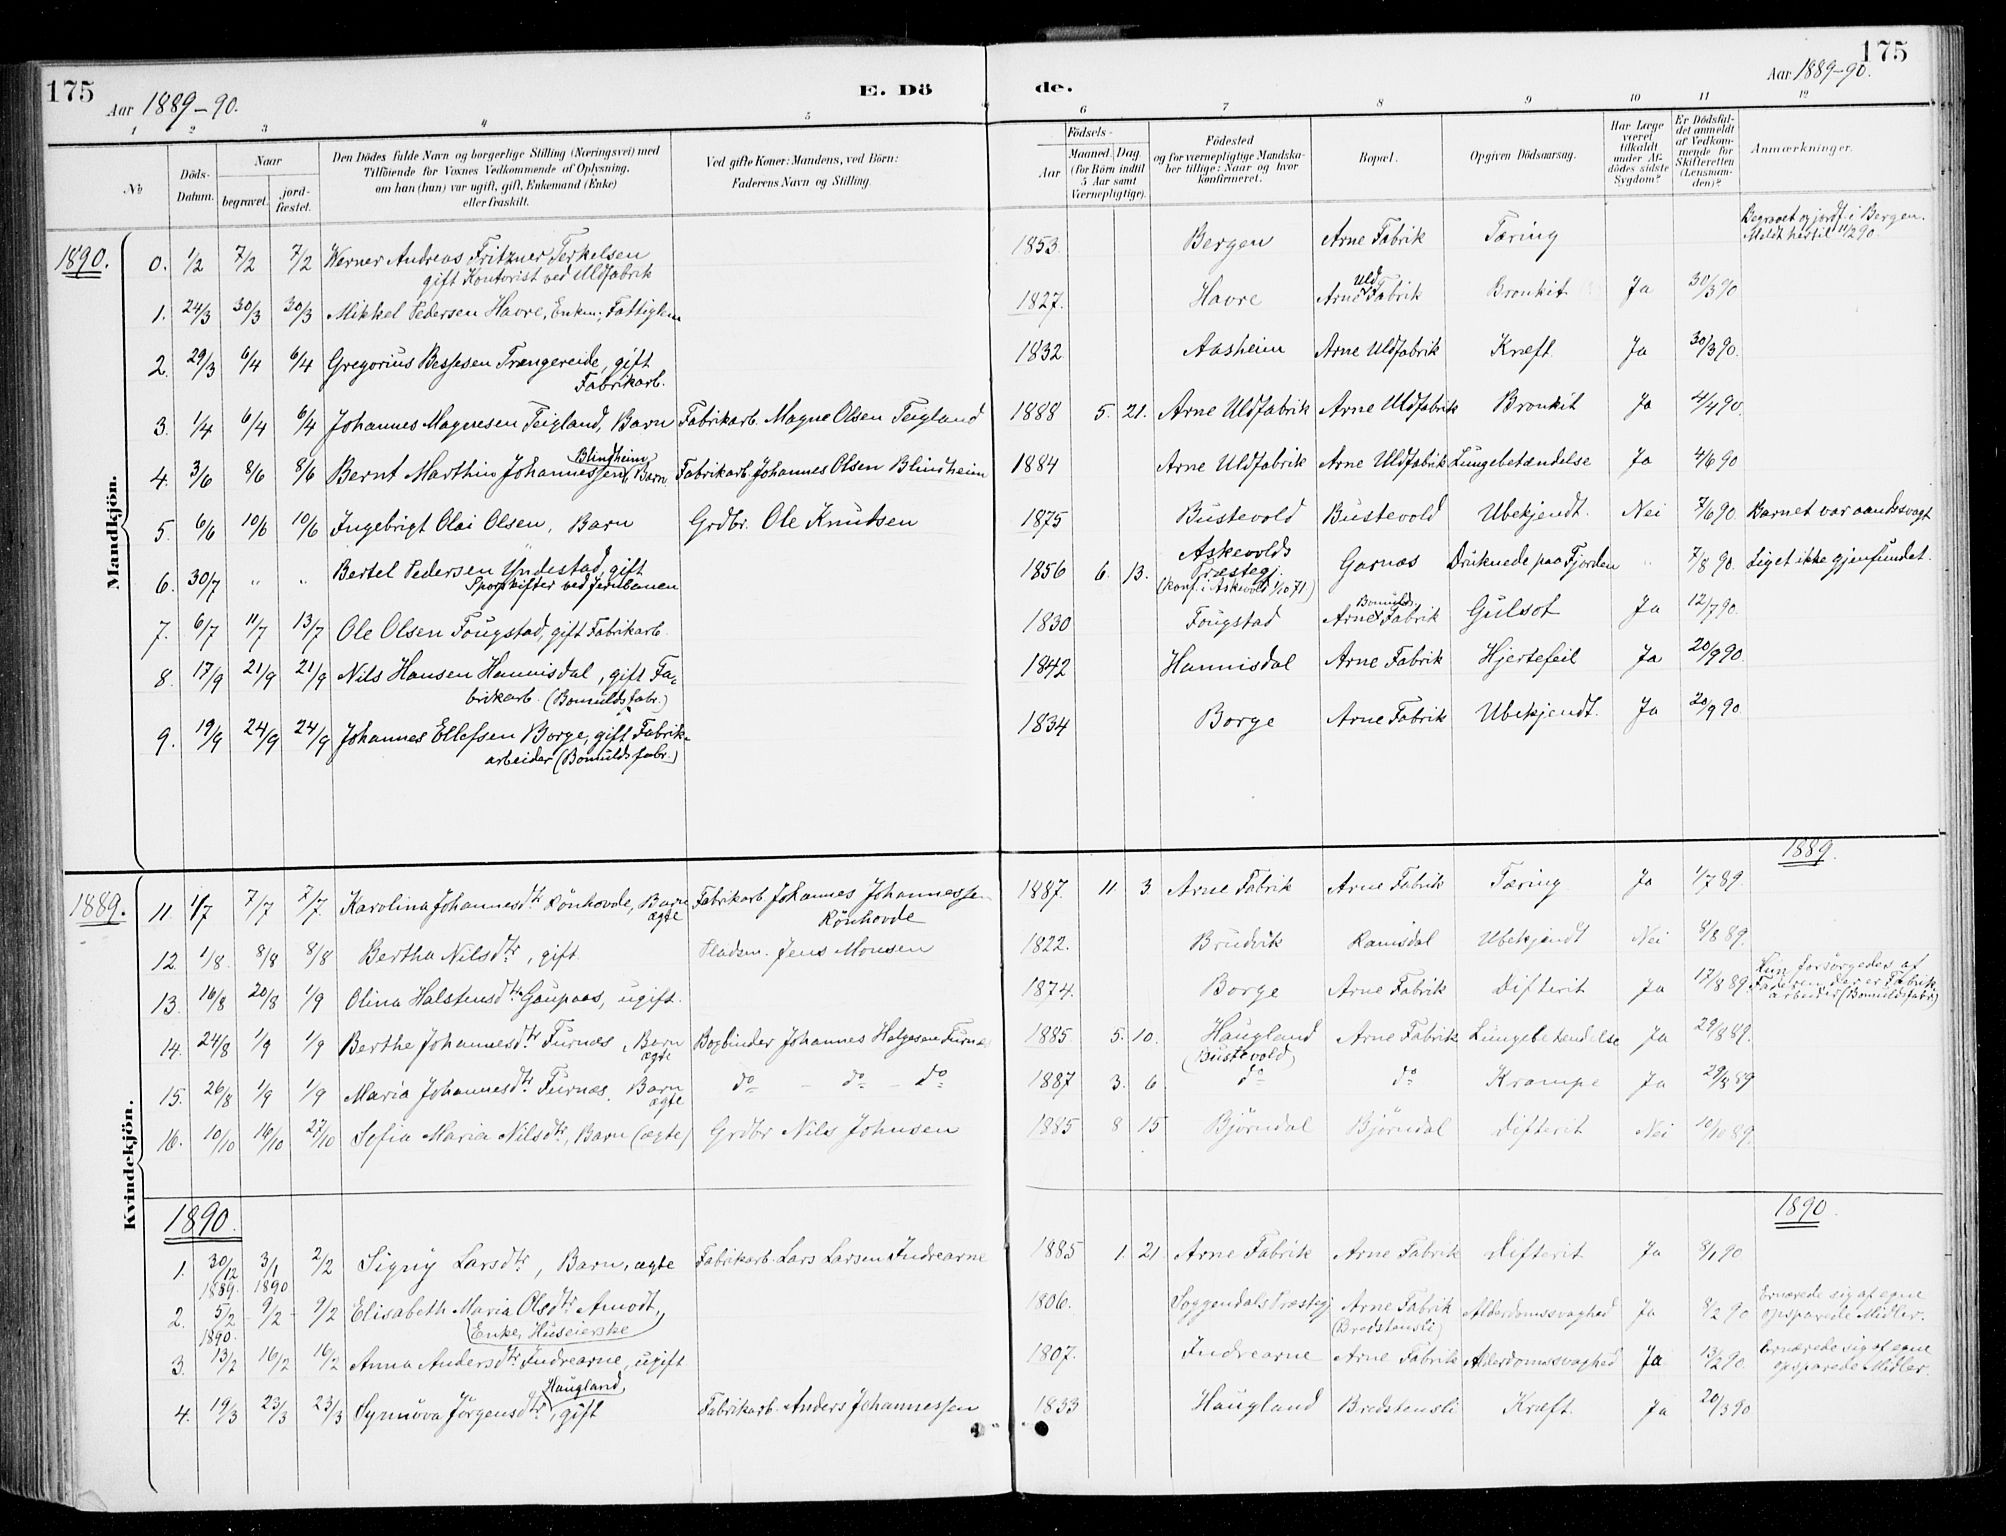 175
Aar 1889-90.
E. Dö
de.
Aar 1889-90.
175
1 2 3 4 5 6 7 8 9 10 11 12
No
Döds-Datum.
Naar
begravet.
jord-fæstet.
Den Dödes fulde Navn og borgerlige Stilling (Næringsvei) med
Tilföiende for Voxnes Vedkommende af Oplysning,
om han (hun) var ugift, gift, Enkemand (Enke)
eller fraskilt.
Ved gifte Koner: Mandens, ved Börn:
Faderens Navn og Stilling.
Födsels-
Aar
Maaned. Dag.
(for Börn indtil
5 Aar samt
Værnepligtige).
Födested
og for værnepligtige Mandska-
ber tillige: Naar og hvor
konfirmeret.
Bopæl.
Opgiven Dödsaarsag.
Har Læge
været
tilkaldt
under Af-
dödes sidste
Sygdom?
Er Dödsfal-
det anmeldt
af Vedkom-
mende for
Skifteretten
(Lensman-
den)?
Anmærkninger.
Mandkjön.
1890.
0. 1/2 7/2 7/2 Werner Andreas Fritzner Terkelsen 1853 Bergen Arne Fabrik Tæring Begravet og jordf. i Bergen.
gift Kontorist ved Uldfabrik Meldt hertil 11/2 90.
1. 24/3 30/3 30/3 Mikkel Pedersen Havre, Enkm., Fattiglem 1827. Havre Arne Uld Fabrik Bronkit Ja 30/3 90
2. 29/3 6/4 6/4 Gregorius Bessesen Trængereide, gift 1832 Aasheim Arne Uldfabrik Kræft Ja 30/3 90.
Fabrikarb.
3. 1/4 6/4 6/4 Johannes Magnesen Teigland, Barn Fabrikarb. Magne Olsen Teigland 1888 5. 21. Arne Uldfabrik Arne Uldfabrik Bronkit Ja 4/4 90.
4. 3/6 8/6 8/6 Bernt Marthin Johannessen Blindheim, Barn Fabrikarb. Johannes Olsen Blindheim 1884 Arne Uldfabrik Arne Uldfabrik Lungebetændelse Ja 4/6 90
5. 6/6 10/6 10/6 Ingebrigt Olai Olsen, Barn Grdbr. Ole Knutsen 1875 Bustevold Bustevold Ubekjendt. Nei 7/6 90. Barnet var aandssvagt
6. 30/7 " " Bertel Pedersen Yndestad, gift 1856 6. 13. Askevolds Præstegj. Garnæs Druknede paa Fjorden " 7/8 90. Liget ikke gjenfundet.
Sporskifter ved Jernbanen (konf. i Askevold 1/10 71.)
7. 6/7 11/7 13/7 Ole Olsen Fougstad, gift Fabrikarb. 1830 Fougstad Arne Bomulds Fabrik Gulsot Ja 12/7 90.
8. 17/9 21/9 21/9 Nils Hansen Hannisdal, gift Fa- 1842 Hannisdal Arne Fabrik Hjertefeil Ja 20/9 90
brikarb. (Bomuldsfabr.)
9. 19/9 24/9 24/9 Johannes Ellefsen Borge, gift Fabrik- 1834 Borge Arne Fabrik Ubekjendt. Ja 20/9 90
arbeider (Bomuldsfabr.)
Kvindekjön.
1889. 1889.
11. 1/7 7/7 7/7 Karolina Johannesdtr Rönhovde, Barn ægte Fabrikarb. Johannes Johannessen Rönhovde 1887. 11. 3 Arne Fabrik Arne Fabrik Tæring Ja 1/7 89.
12. 1/8. 8/8 8/8 Bertha Nilsdtr, gift Pladsm. Jens Monsen 1822. Brudvik Ramsdal Ubekjendt Nei 8/8 89.
13. 16/8 20/8 1/9 Olina Halstensdtr Gaupaas, ugift. 1874. Borge Arne Fabrik Difterit Ja 17/8 89. Hun forsørgedes af
Faderen der er Fabrik-
arbeider (Bomuldsfabr)
14. 24/8 1/9 1/9 Berthe Johannesdtr Furnæs, Barn ægte Bogbinder Johannes Helgesen Furnæs 1885 5. 10. Haugland (Bustevold) Arne Fabrik Lungebetændelse Ja 29/8 89.
15. 26/8 1/9 1/9 Maria Johannesdtr Furnæs. Barn ægte do - do - do 1887 3. 6 do do Krampe Ja 29/8 89
16. 10/10 16/10 27/10 Sofia Maria Nilsdtr, Barn (ægte) Grdbr Nils Johnsen 1885 8 15 Björndal Björndal Difterit Nei 10/10 89.
1890. 1890.
1. 30/12 1889. 3/1 1890 2/2 Signy Larsdtr, Barn, ægte Fabrikarb. Lars Larsen Indrearne 1885 1. 21. Arne Fabrik Arne Fabrik Difterit Ja 8/1 90
2. 5/2 1890. 9/2 9/2 Elisabeth Maria Olsdtr Amodt, 1806. Soggendals Præstegj Arne Fabrik (Bredstensli) Alderdomssvaghed Ja 8/2 90 Ernærede sig af egne
Enke, Huseierske opsparede Midler.
3. 13/2 16/2 16/2 Anna Andersdtr Indrearne, ugift 1807. Indrearne Arne Fabrik Alderdomssvaghed Ja 13/2 90. Ernærede sig af egne
opsparede Midler.
4. 19/3 23/3 23/3 Synnöva Jörgensdtr Haugland, gift Fabrikarb. Anders Johannessen 1833 Haugland Bredstensli Kræft. Ja 20/3 90